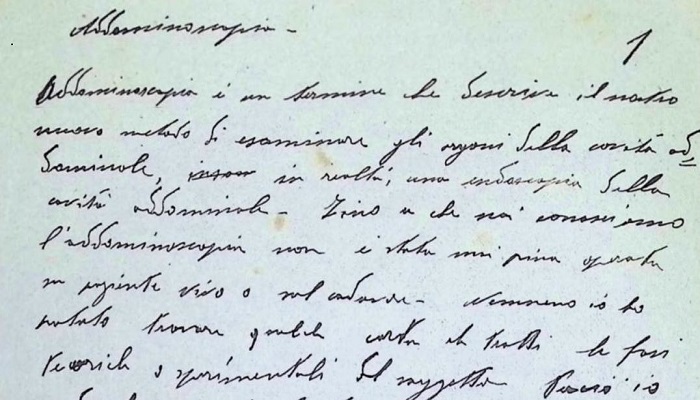 Addominoscopia -
1
Addominoscopia è un termine che descrive il nostro
nuovo metodo di esaminare gli organi della cavità ad
dominale, in realtà, una endoscopia della
cavità addominale - Fino a che noi conosciamo
l'addominoscopia non è stata mai prima operata
su paziente vivo o sul cadavere - Nemmeno io ho
potuto trovare qualche carta che tratti le fasi
teoriche o sperimentali del soggetto. Perciò io